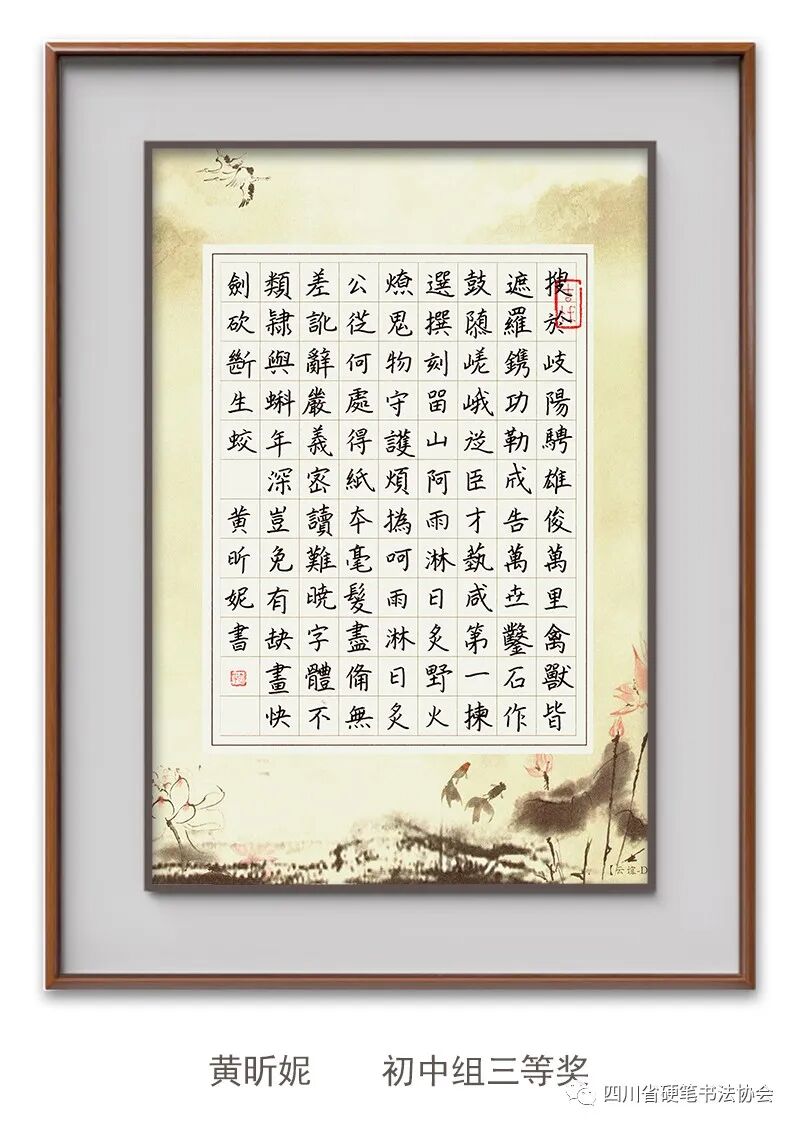 搜於岐陽騁雄俊萬里禽獸皆
遮羅鐫功勒成告萬世鑿石作
鼓隳嵯峨從臣才藝咸第一揀
選撰刻留山阿雨淋日炙野火
燎鬼物守護煩撝呵雨淋日炙
公從何處得紙本毫髮盡備無
差訛辭嚴義密讀難曉字體不
類隸與蝌年深豈免有缺畫快
劍砍斷生蛟 黄昕妮書
黄昕妮 初中组三等奖
四川省硬笔书法协会